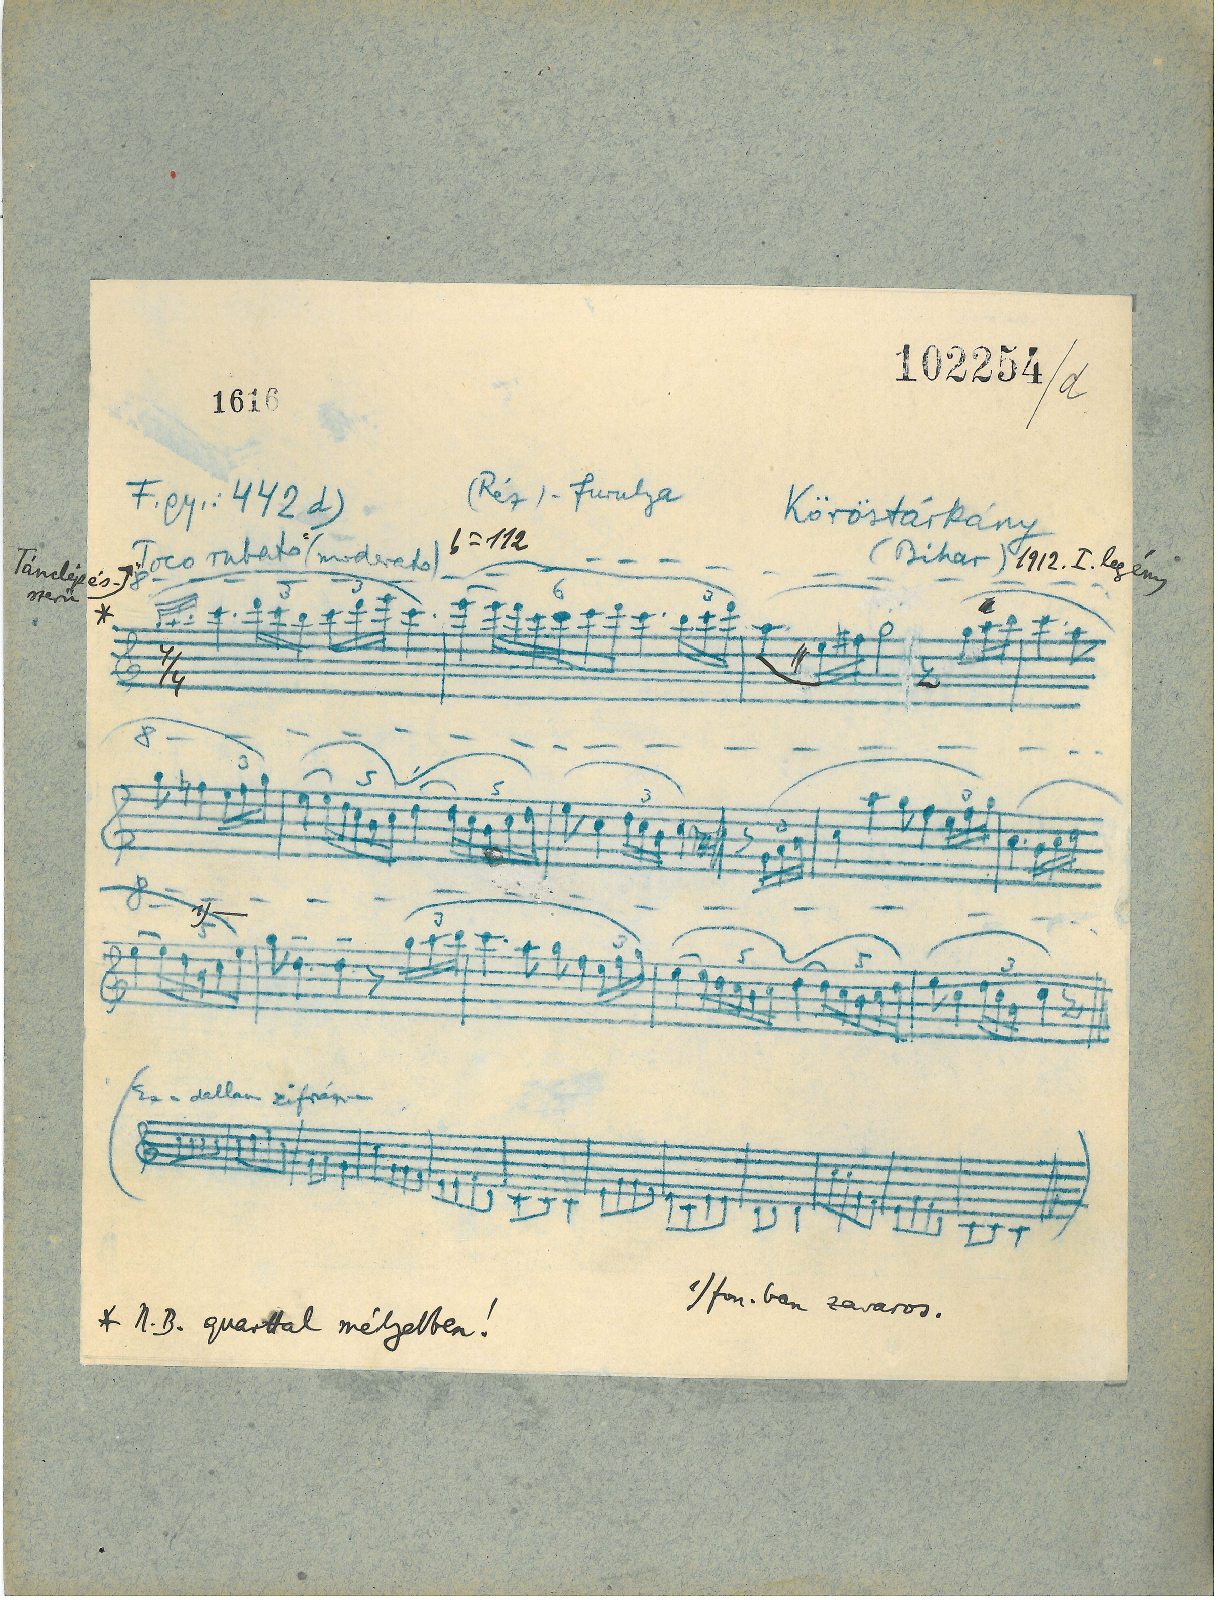 102254/d
1616
F.gy.: 442 d) (Réz)-furulya Köröstárkány
"Poco rubato" (moderato) = 112 (Bihar) 1912. I. legény
Tánclépés-
szerű
*
8 3 3 6 3
4/4
8 3 5 5 3 3 3
8 1) 5 3 3 5 5 3
* N.B. quarttal mélyebben!
1) fon.-ban zavaros.